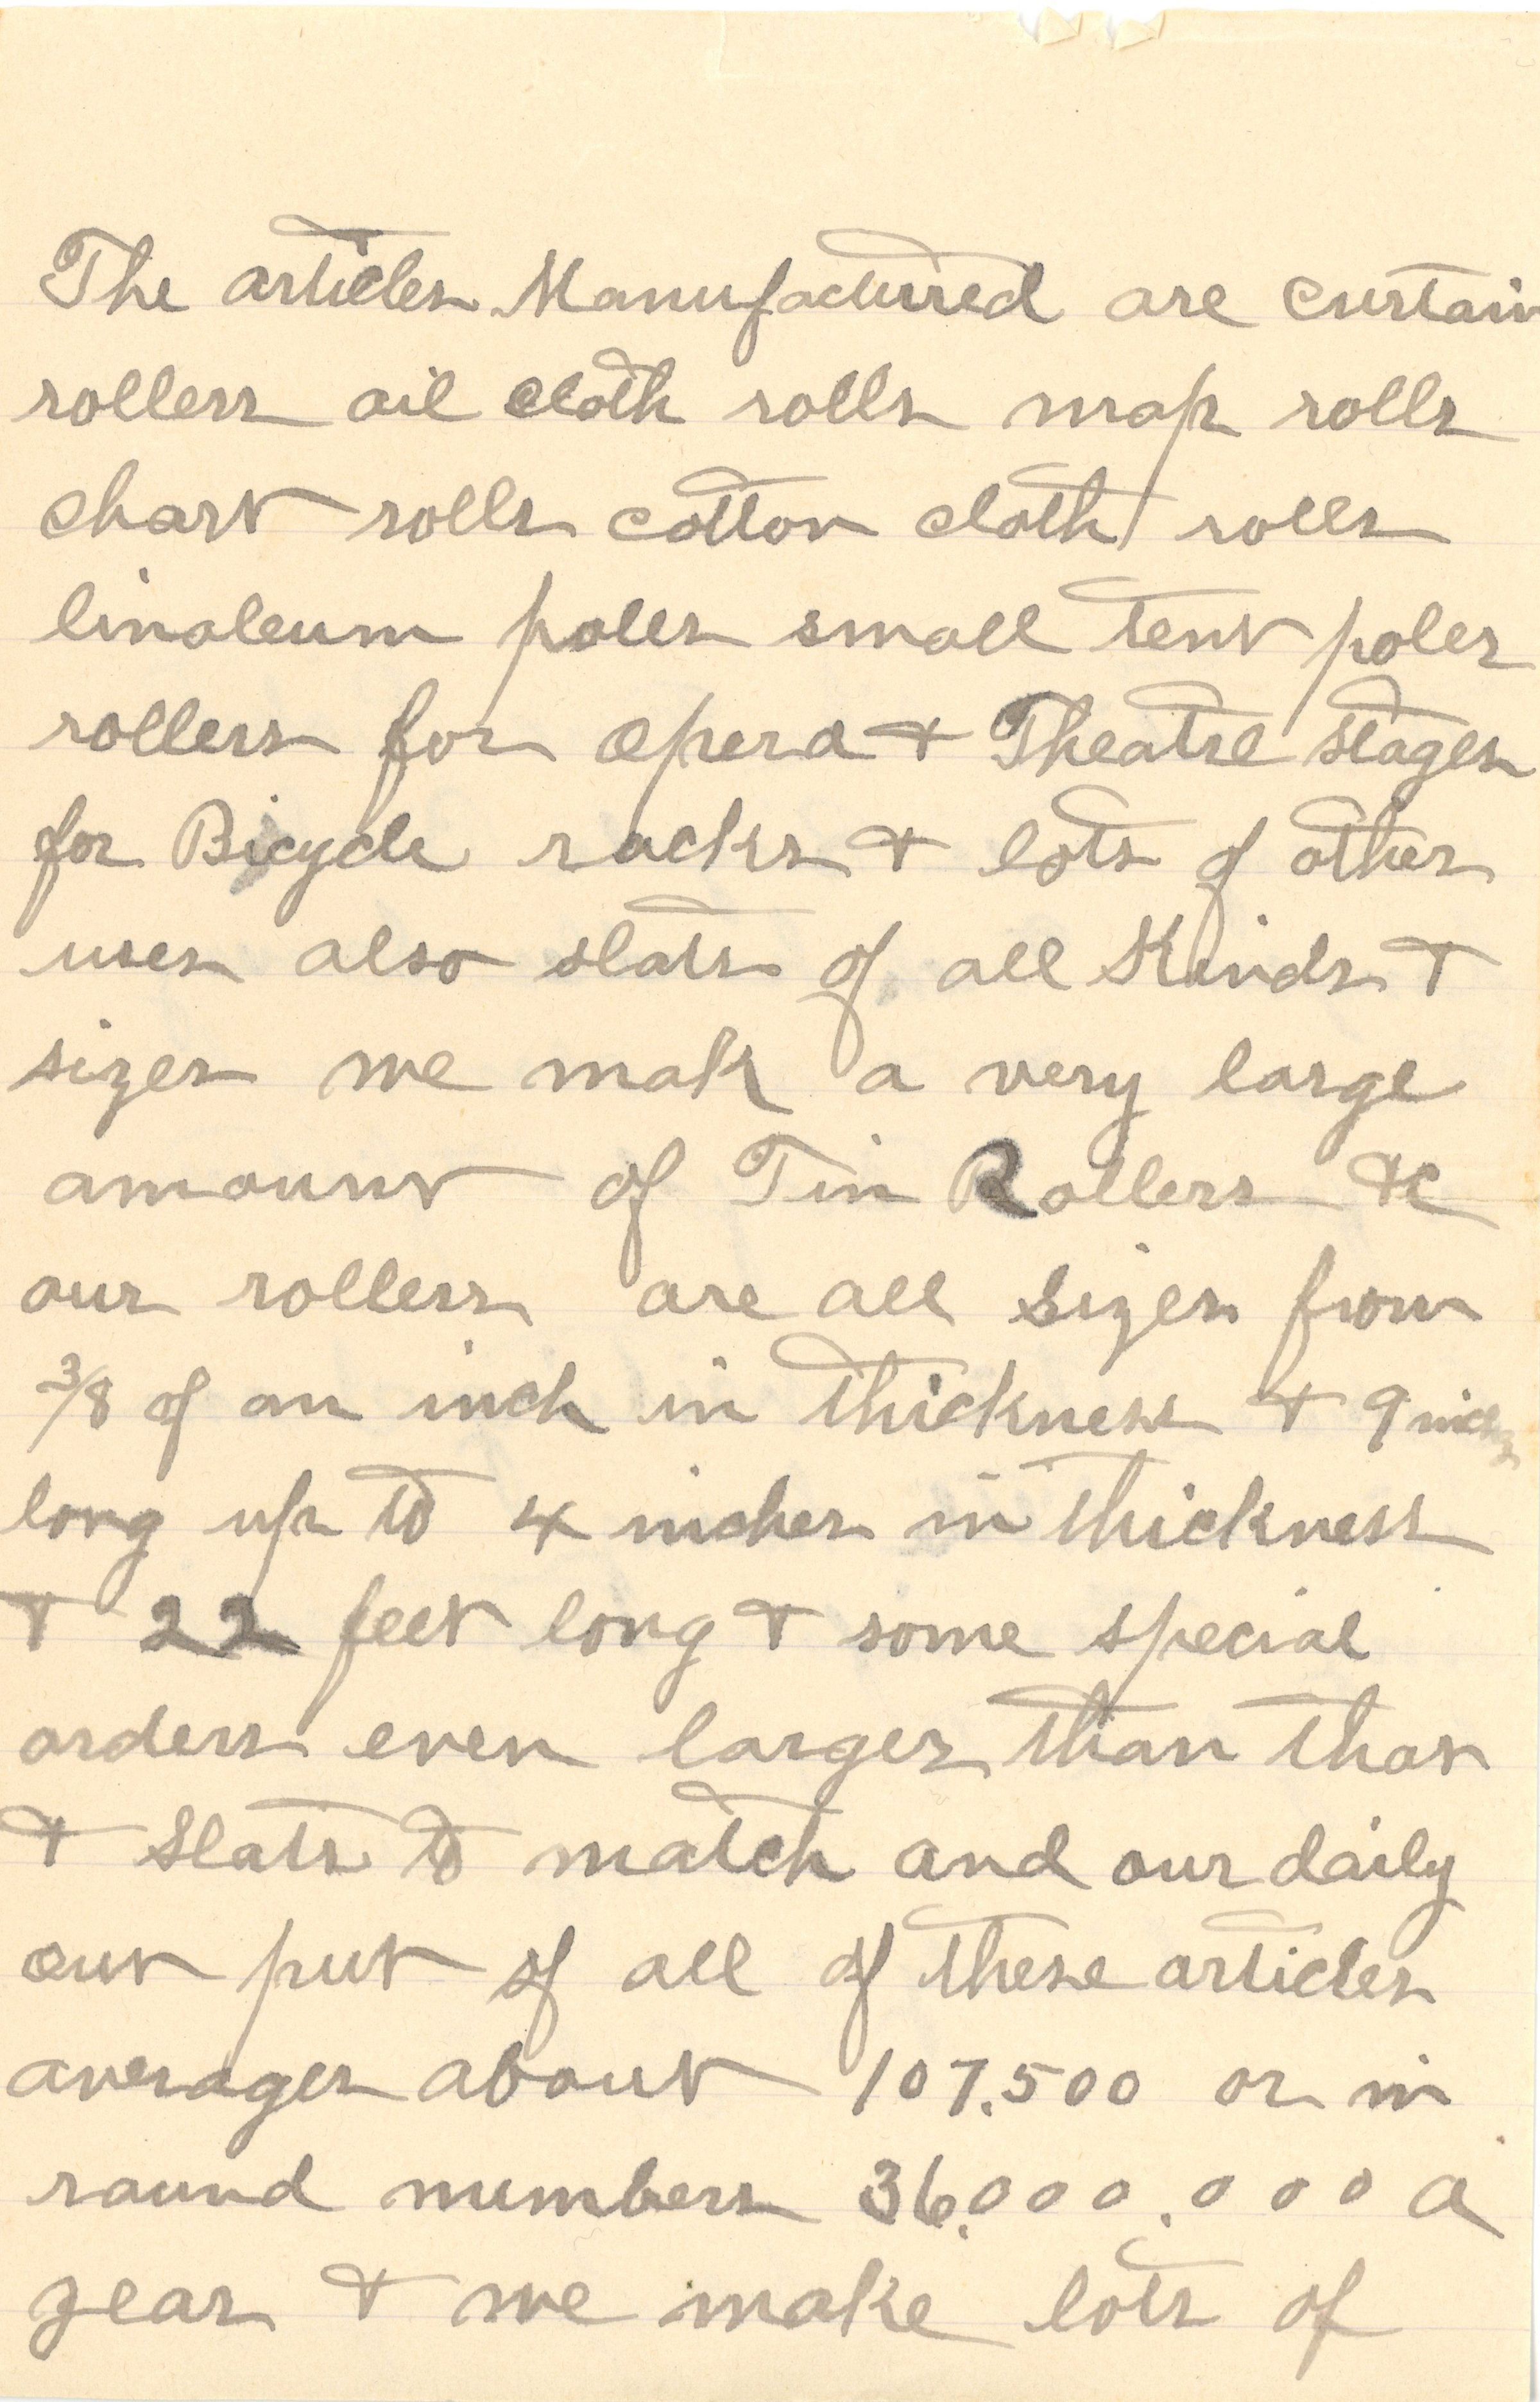 The articles Manufactured are curtain
rollers oil cloth rolls map rolls
chart rolls cotton cloth rolls
linoleum poles small tent poles
rollers for opera & Theatre stages
for Bicycle racks & lots of other
uses also slats of all Kinds &
sizes we mak a very large
amount of Tin Rollers &c
our rollers are all sizes from
3/8 of an inch in thickness & 9 inches
long up to 4 inches in thickness
& 22 feet long & some special
orders even larger than that
& slats to match and our daily
out put of all of these articles
averages about 107.500 or in
round numbers 36.000.000 a
year & we make lots of